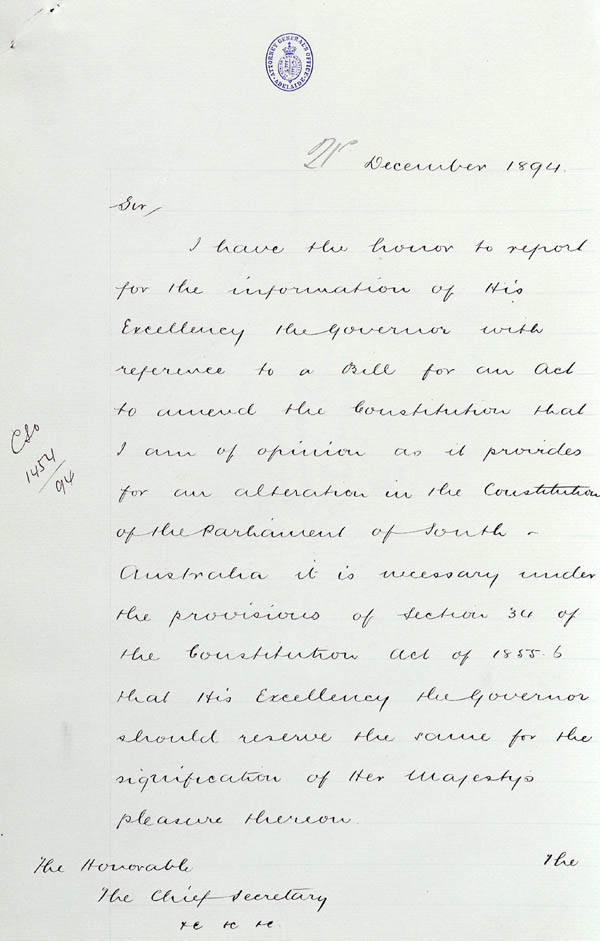 ATTORNEY GENERAL'S OFFICE ADELAIDE
21 December 1894.
Sir,
I have the honor to report
for the information of His
Excellency the Governor with
reference to a Bill for an Act
to amend the Constitution that
I am of opinion as it provides
for an alteration in the Constitution
of the Parliament of South-
Australia it is necessary under
the provisions of Section 34 of
the Constitution Act of 1855.6
that His Excellency the Governor
should reserve the same for the
signification of Her Majesty's
pleasure thereon.
CSO
1454/94
The Honorable The
The Chief Secretary
&c &c &c